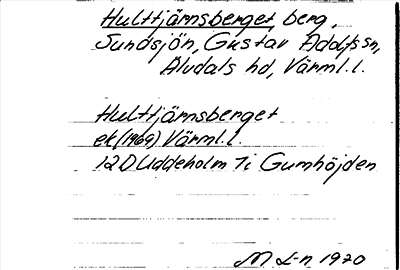 Hulttjärnsberget, berg,
Sundsjön, Gustav Adolfs sn,
Älvdals hd, Värml.l.
Hulttjärnsberget
ek (1969) Värml.l.
12D Uddeholm 7i Gumhöjden
M L-n 1970